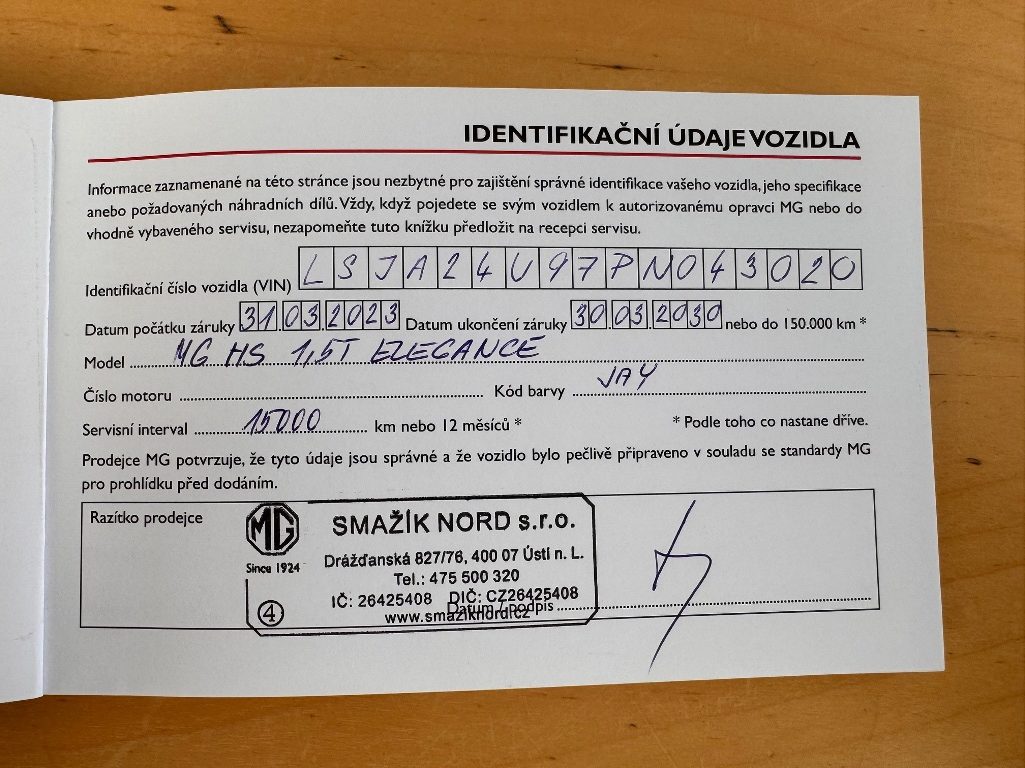 IDENTIFIKAČNÍ ÚDAJE VOZIDLA
Informace zaznamenané na této stránce jsou nezbytné pro zajištění správné identifikace vašeho vozidla, jeho specifikace
anebo požadovaných náhradních dílů. Vždy, když pojedete se svým vozidlem k autorizovanému opravci MG nebo do
vhodně vybaveného servisu, nezapomeňte tuto knížku předložit na recepci servisu.
Identifikační číslo vozidla (VIN) LSJA24U97PN043020
Datum počátku záruky 31 03 2023 Datum ukončení záruky 30 03 2030 nebo do 150.000 km *
Model MG HS 1,5T ELEGANCE
Číslo motoru Kód barvy JAY
Servisní interval 15000 km nebo 12 měsíců * * Podle toho co nastane dříve.
Prodejce MG potvrzuje, že tyto údaje jsou správné a že vozidlo bylo pečlivě připraveno v souladu se standardy MG
pro prohlídku před dodáním.
Razítko prodejce
MG
Since 1924
SMAŽÍK NORD s.r.o.
Drážďanská 827/76, 400 07 Ústí n. L.
Tel.: 475 500 320
IČ: 26425408 DIČ: CZ26425408
4
www.smaziknord.cz
Datum / podpis